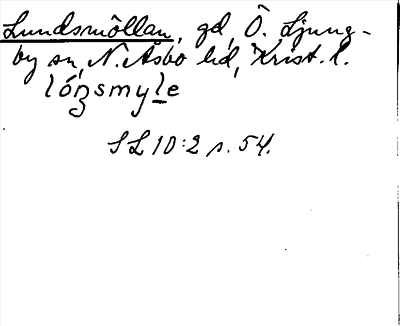 Lundsmöllan, gd, Ö. Ljung-
by sn, N. Åsbo hd, Krist. l.
lóꞥsmyl̲e
SL 10:2 s. 54.